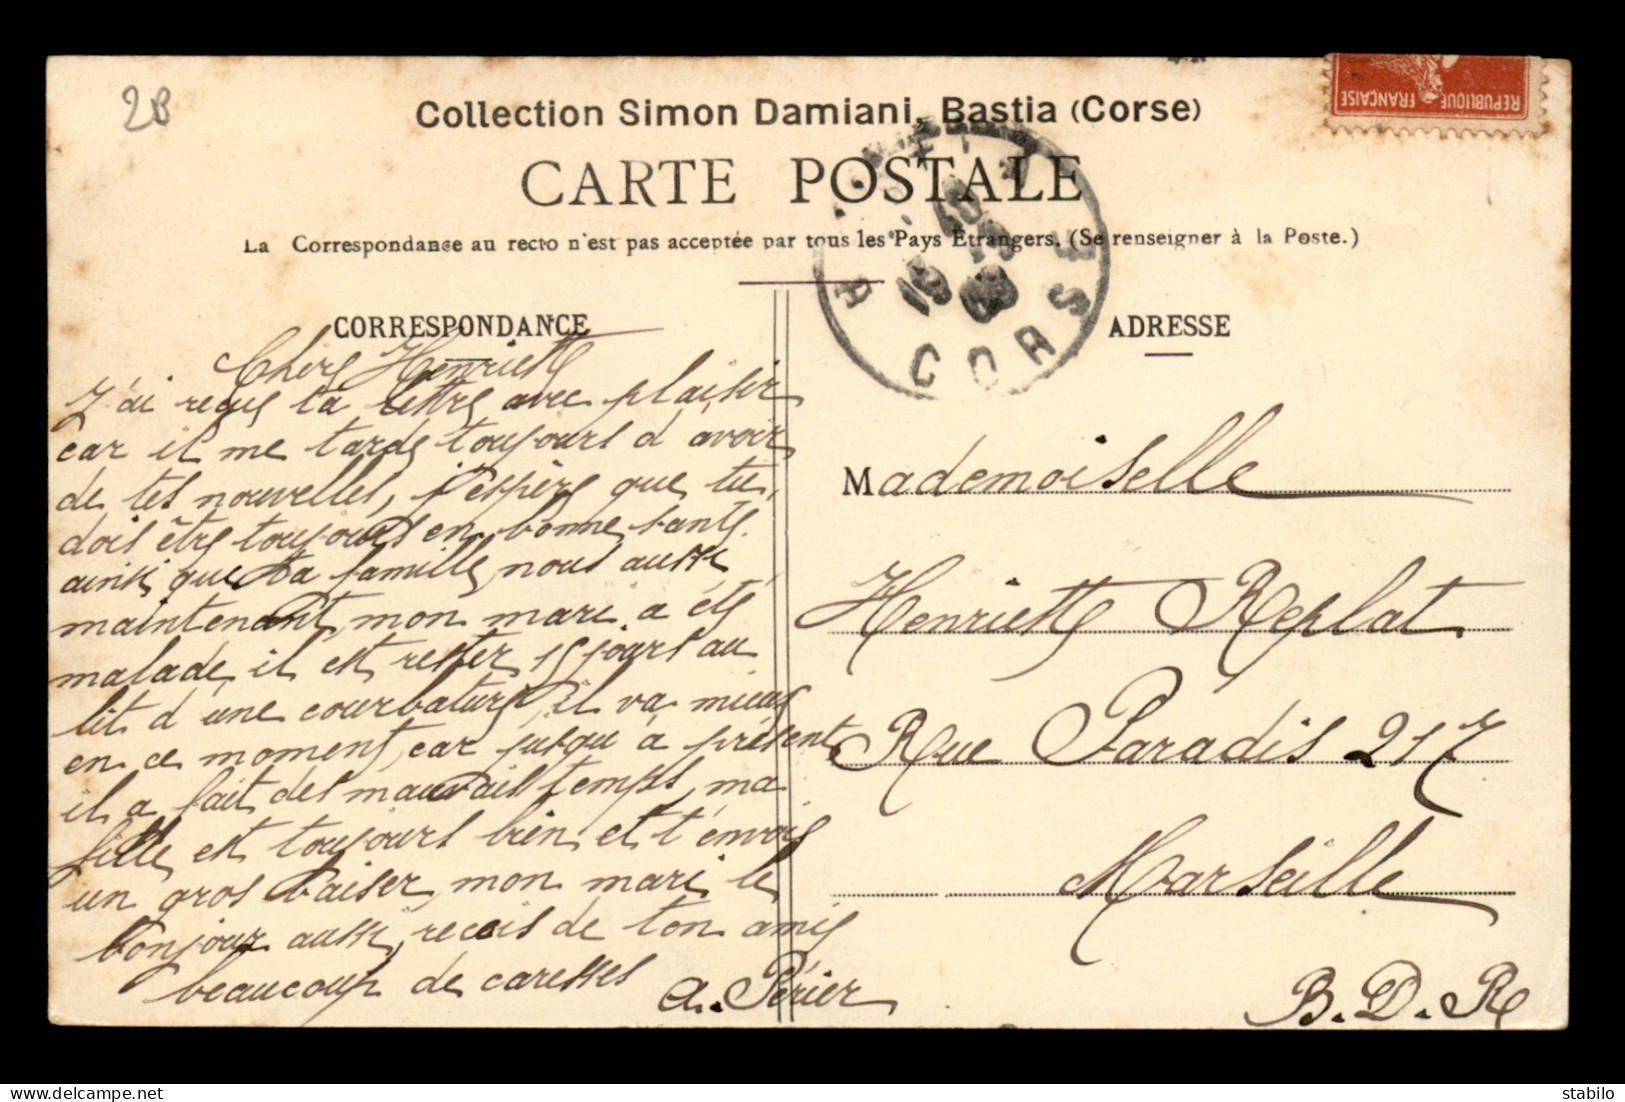 2B
Collection Simon Damiani, Bastia (Corse)
CARTE POSTALE
La Correspondance au recto n'est pas acceptée par tous les Pays Etrangers. (Se renseigner à la Poste.)
REPUBLIQUE FRANÇAISE
CORSE
CORRESPONDANCE
ADRESSE
Chère Henriette
J'ai reçue ta lettre avec plaisir
car il me tarde toujours d'avoir
de tes nouvelles, j'espère que tu
dois être toujours en bonne santé
ainsi que ta famille, nous aussi
maintenant, mon mari a été
malade, il est rester 15 jours au
lit d'une courbature, il va mieux
en ce moment, car jusqu'à présent
il a fait des mauvais temps, ma
fille est toujours bien et t'envois
un gros baiser, mon mari le
bonjour aussi, recois de ton amie
beaucoup de caresses
A. Périer
Mademoiselle
Henriette Replat
Rue Paradis 217
Marseille
B.D.R
stabilo